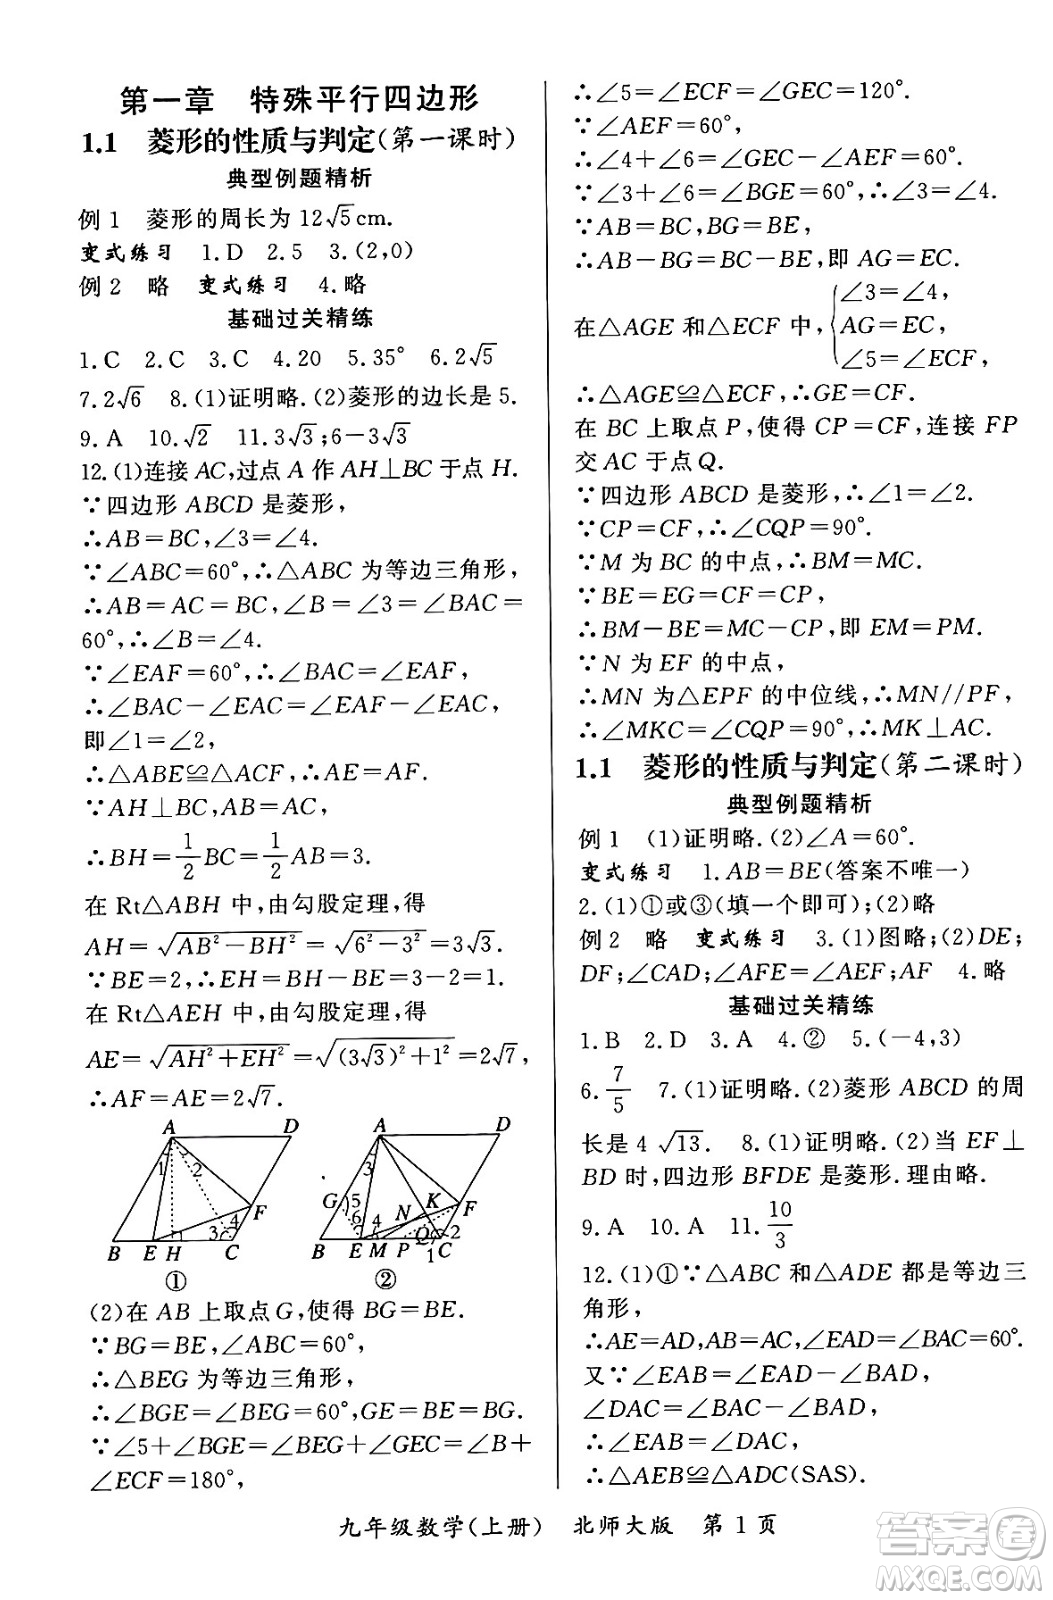 第一章 特殊平行四边形
1.1 菱形的性质与判定(第一课时)
典型例题精析
例1 菱形的周长为12√5cm.
变式练习 1.D 2.5 3.(2,0)
例2 略 变式练习 4.略
基础过关精练
1.C 2.C 3.C 4.20 5.35° 6.2√5
7.2√6 8.(1)证明略.(2)菱形的边长是5.
9.A 10.√2 11.3√3;6-3√3
12.(1)连接AC,过点A作AH⊥BC于点H.
∵四边形ABCD是菱形,
∴AB=BC,∠3=∠4.
∵∠ABC=60°,∴△ABC为等边三角形,
∴AB=AC=BC,∠B=∠3=∠BAC=
60°,∴∠B=∠4.
∵∠EAF=60°,∴∠BAC=∠EAF,
∴∠BAC-∠EAC=∠EAF-∠EAC,
即∠1=∠2,
∴△ABE≌△ACF,∴AE=AF.
∵AH⊥BC,AB=AC,
∴BH=1/2BC=1/2AB=3.
在Rt△ABH中,由勾股定理,得
AH=√(AB²-BH²)=√(6²-3²)=3√3.
∵BE=2,∴EH=BH-BE=3-2=1.
在Rt△AEH中,由勾股定理,得
AE=√(AH²+EH²)=√((3√3)²+1²)=2√7,
∴AF=AE=2√7.
A D 1 2 F 4 3 B E H C
①
A D 3 G 5 6 4 N K F 2 Q B E M P 1 C
②
(2)在AB上取点G,使得BG=BE.
∵BG=BE,∠ABC=60°,
∴△BEG为等边三角形,
∴∠BGE=∠BEG=60°,GE=BE=BG.
∵∠5+∠BGE=∠BEG+∠GEC=∠B+
∠ECF=180°,
∴∠5=∠ECF=∠GEC=120°.
∵∠AEF=60°,
∴∠4+∠6=∠GEC-∠AEF=60°.
∵∠3+∠6=∠BGE=60°,∴∠3=∠4.
∵AB=BC,BG=BE,
∴AB-BG=BC-BE,即AG=EC.
∠3=∠4,
在△AGE和△ECF中,{AG=EC,
∠5=∠ECF,
∴△AGE≌△ECF,∴GE=CF.
在BC上取点P,使得CP=CF,连接FP
交AC于点Q.
∵四边形ABCD是菱形,∴∠1=∠2.
∵CP=CF,∴∠CQP=90°.
∵M为BC的中点,∴BM=MC.
∵BE=EG=CF=CP,
∴BM-BE=MC-CP,即EM=PM.
∵N为EF的中点,
∴MN为△EPF的中位线,∴MN//PF,
∴∠MKC=∠CQP=90°,∴MK⊥AC.
1.1 菱形的性质与判定(第二课时)
典型例题精析
例1 (1)证明略.(2)∠A=60°.
变式练习 1.AB=BE(答案不唯一)
2.(1)①或③(填一个即可);(2)略
例2 略 变式练习 3.(1)图略;(2)DE;
DF;∠CAD;∠AFE=∠AEF;AF 4.略
基础过关精练
1.B 2.D 3.A 4.② 5.(-4,3)
6.7/5 7.(1)证明略.(2)菱形ABCD的周
长是4√13. 8.(1)证明略.(2)当EF⊥
BD时,四边形BFDE是菱形.理由略.
9.A 10.A 11.10/3
12.(1)①∵△ABC和△ADE都是等边三
角形,
∴AE=AD,AB=AC,∠EAD=∠BAC=60°.
又∵∠EAB=∠EAD-∠BAD,
∠DAC=∠BAC-∠BAD,
∴∠EAB=∠DAC,
∴△AEB≌△ADC(SAS).
九年级数学(上册) 北师大版 第1页
答案圈
MXQE.COM